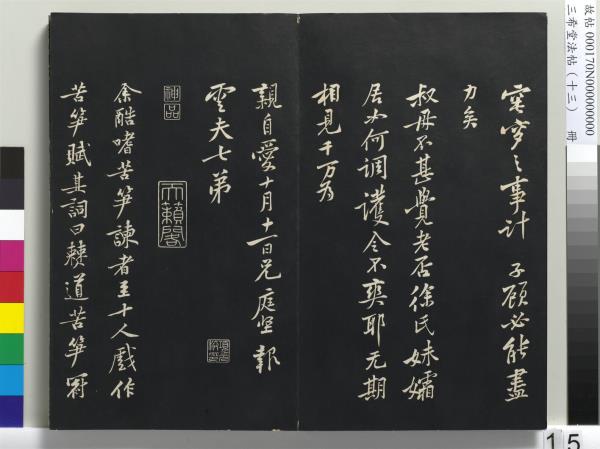 窀穸之事計 子顧必能盡
力矣
叔母不甚覺老否徐氏妹孀
居如何調護令不爽耶无期
相見千万為
親自愛十月十一日兄庭堅報
雲夫七弟
神品
天籟閣
余酷嗜苦筍諫者至十人戲作
苦筍賦其詞曰僰道苦筍冠
故帖 000170N000000000
三希堂法帖（十三） 冊
15